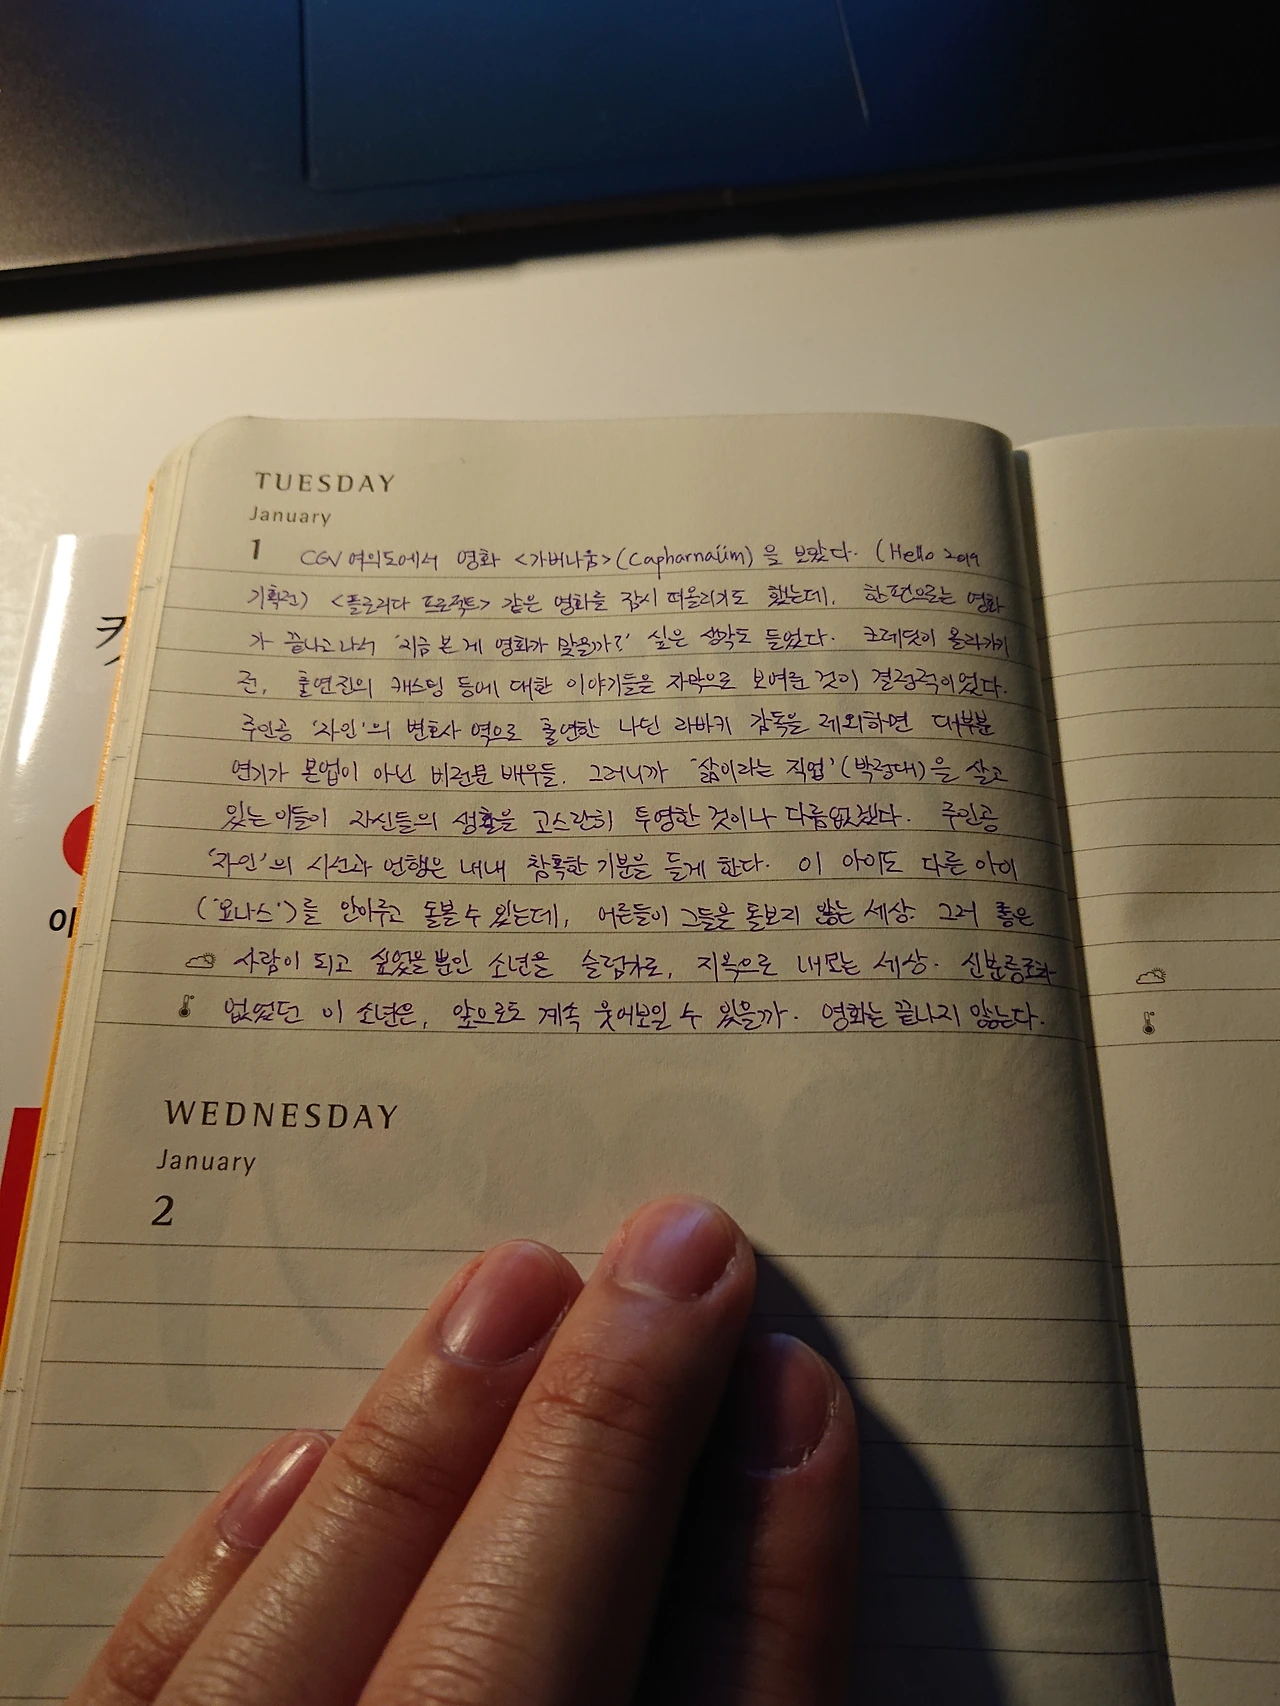 TUESDAY
January
1 CGV 여의도에서 영화 <가버나움>(Capharnaüm)을 보았다. (Hello 2019
기획전) <플로리다 프로젝트> 같은 영화를 잠시 떠올리기도 했는데, 한편으로는 영화
가 끝나고 나서 '지금 본 게 영화가 맞을까?' 싶은 생각도 들었다. 크레딧이 올라가기
전, 출연진의 캐스팅 등에 대한 이야기들을 자막으로 보여준 것이 결정적이었다.
주인공 '자인'의 변호사 역으로 출연한 나딘 라바키 감독을 제외하면 대부분
연기가 본업이 아닌 비전문 배우들. 그러니까 '삶이라는 직업'(박정대)을 살고
있는 이들이 자신들의 생활을 고스란히 투영한 것이나 다름없겠다. 주인공
'자인'의 시선과 언행은 내내 참혹한 기분을 들게 한다. 이 아이도 다른 아이
('요나스')를 안아주고 돌볼 수 있는데, 어른들이 그들을 돌보지 않는 세상. 그저 좋은
사람이 되고 싶었을 뿐인 소년을 슬럼가로, 지옥으로 내모는 세상. 신분증조차
없었던 이 소년은, 앞으로도 계속 웃어보일 수 있을까. 영화는 끝나지 않는다.
WEDNESDAY
January
2